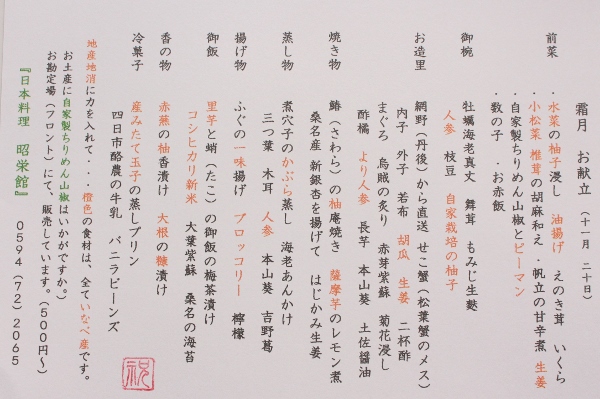 霜月 お献立 (十一月 二十日)
前菜 ・水菜の柚子浸し 油揚げ えのき茸 いくら
・小松菜 椎茸の胡麻和え ・帆立の甘辛煮 生姜
・自家製ちりめん山椒とピーマン
・数の子 ・お赤飯
御椀 牡蠣海老真丈 舞茸 もみじ生麩
人参 枝豆 自家栽培の柚子
お造里 網野(丹後)から直送 せこ蟹(松葉蟹のメス)
内子 外子 若布 胡瓜 生姜 二杯酢
まぐろ 烏賊の炙り 赤芽紫蘇 菊花浸し
酢橘 より人参 長芋 本山葵 土佐醤油
焼き物 鰆(さわら)の柚庵焼き 薩摩芋のレモン煮
桑名産 新銀杏を揚げて はじかみ生姜
蒸し物 煮穴子のかぶら蒸し 海老あんかけ
三つ葉 木耳 人参 本山葵 吉野葛
揚げ物 ふぐの一味揚げ ブロッコリー 檸檬
御飯 里芋と蛸(たこ)の御飯の梅茶漬け
コシヒカリ新米 大葉紫蘇 桑名の海苔
香の物 赤蕪の柚香漬け 大根の糠漬け
冷菓子 産みたて玉子の蒸しプリン
四日市酪農の牛乳 バニラビーンズ
地産地消に力を入れて・・・橙色の食材は、全ていなべ産です。
お土産に自家製ちりめん山椒はいかがですか。
お勘定場(フロント)にて、販売しています。(500円〜)
『日本料理 昭栄館』 0594(72)2065
祝